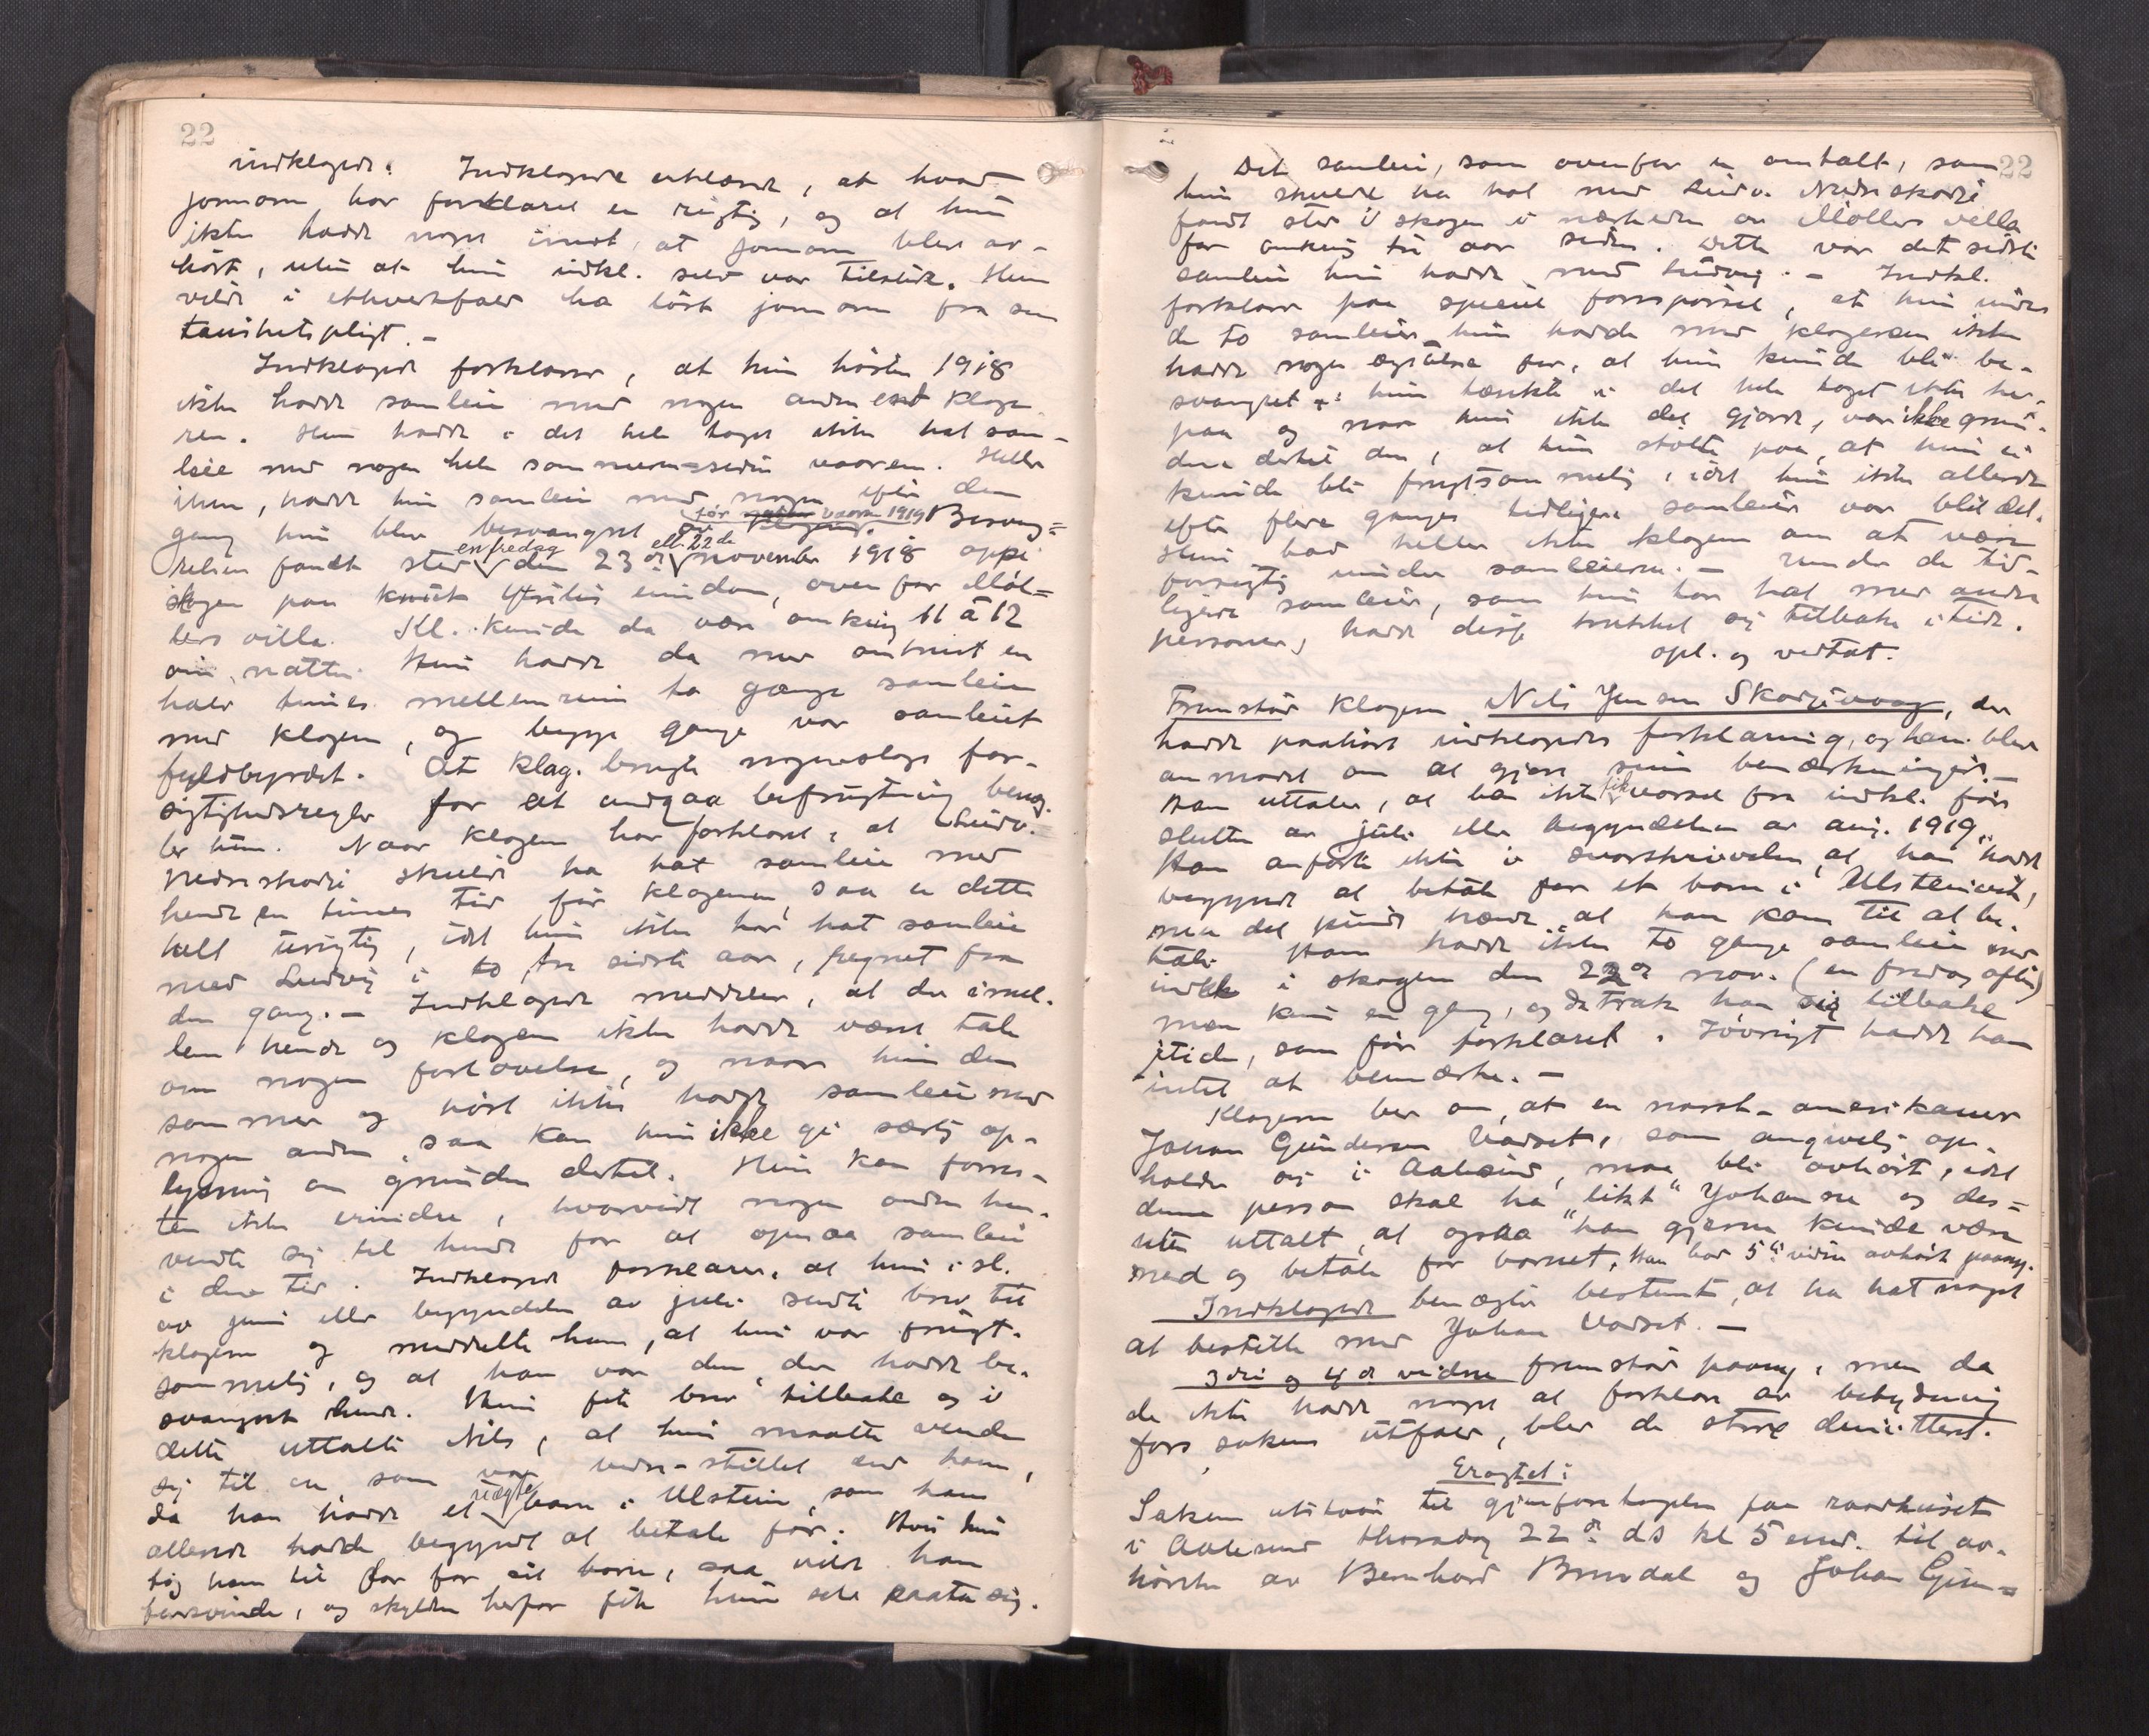 22
indklagede. Indklagede erklærede, at hvad
jormoren har forklaret er rigtig, og at hun
ikke hadde noget imot, at jormoren blev av-
hørt, uten at hun indkl. selv var tilstede. Hun
vilde i ethvertfald ha løst jormoren fra sin
taushetspligt. –
Indklagede forklarer, at hun høsten 1918
ikke hadde samleie med nogen anden end klage
ren. Hun hadde i det hele taget ikke hat sam-
leie med nogen hele sommeren – siden vaaren. Heller
ikke hadde hun samleie med nogen efter den
gang hun blev besvangret av klageren. før vaaren 1919 Besvang=
relsen fandt sted en fredag den 23de ell. 22de november 1918 oppi
skogen paa Knut eiendom, ovenfor Møl=
lers villa. Kl. kunde da være omkring 11 à 12
om natten. Hun hadde da med omtrent en
halv times mellemrum to gange samleie
med klageren, og begge gange var samleiet
fuldbyrdet. At klag. brugte nogensslags for-
sigtighedsregler for at undgaa befrugtning benæg-
ter hun. Naar klageren har forklaret, at Ludv.
Nedreskodje skulde ha hat samleie med
hende en times tid før klageren, saa er dette
helt urigtig, idet hun ikke har hat samleie
med Ludvig i to, tre sidste aar, regnet fra
den gang. – Indklagede meddeler, at der imel-
lem hende og klageren ikke hadde været tale
om nogen forlovelse, og naar hun den
sommer og høst ikke hadde samleie med
nogen anden, saa kan hun ikke gi særlig op-
lysning om grunden dertil. Hun kan forres-
ten ikke erindre, hvorvidt nogen anden hen-
vendte sig til hende for at opnaa samleie
i den tid. Indklagede forklarer, at hun i sl.
av juni eller begyndelsen av juli sendte brev til
klageren og meddelte ham, at hun var frugt-
sommelig, og at han var den, der hadde be-
svangret hende. Hun fik brev tilbake og i
dette uttalte Nils, at hun maatte vende
sig til en som var bedre stillet end ham,
da han hadde et uegte barn i Ulstein, som han
allerede hadde begyndt at betale for. Hvis hun
tog ham til far for sit barn, saa vilde han
forsvinde, og skylden herfor fik hun selv paata sig.
22
Det samleie, som ovenfor er omtalt, som
hun skulde ha hat med Ludv. Nedreskodje
fandt sted i skogen i nærheden av Møllers villa
for omkring tre aar siden. Dette var det sidste
samleie hun hadde med Ludvig. – Indkl.
forklarer paa speciel forespørsel, at hun under
de to samleier hun hadde med klageren ikke
hadde nogen ængstelse for, at hun kunde bli be-
svangret; hun tænkte i det hele taget ikke her-
paa og naar hun ikke det gjorde, var ikke grun-
den dertil den, at hun stolte paa, at hun ei
kunde bli frugtsommelig, idet hun ikke allerede
efter flere ganges tidligere samleier var blit det.
Hun bad heller ikke klageren om at være
forsigtig under samleierne. – Under de tid-
ligere samleier, som hun har hat med andre
personer, hadde disse trukket sig tilbake i tide.
opl. og vedtat.
Fremstod klageren Nils Jensen Skodjevaag, der
hadde paahørt indklagedes forklaring, og han blev
anmodet om at gjøre sine bemærkninger. –
Han uttaler, at han ikke fik varsel fra indkl. før
slutten av juli eller begyndelsen av aug. 1919.
Han anførte ikke i svarskrivelsen, at han hadde
begyndt at betale for et barn i Ulstenvik,
men det kunde hænde, at han kom til at be-
tale. Han hadde ikke to gange samleie med
indkl. i skogen den 22de nov. (en fredag aften)
men kun en gang, og da trak han sig tilbake
itide, som før forklaret. Iøvrigt hadde han
intet at bemærke. –
Klageren ber om, at en norsk-amerikaner
Johan Gundersen Vadset, som angivelig op-
holder sig i Aalesund, maa bli avhørt, idet
denne person skal ha "likt" Johanne og des=
uten uttalt, at ogsaa "han gjerne kunde være
med og betale for barnet. Han bad 5te vidne avhørt paany.
Indklagede benægter bestemt, at ha hat noget
at bestille med Johan Vadset. –
3die og 4de vidne fremstod paany, men da
de ikke hadde noget at forklare av betydning
for sakens utfald, blev de straks demitteret.
Eragtet:
Saken utstaar til gjenforetagelse paa raadhuset
i Aalesund thorsdag 22de ds kl 5 emd. til av-
hørelse av Bernhard Brusdal og Johan Gun=